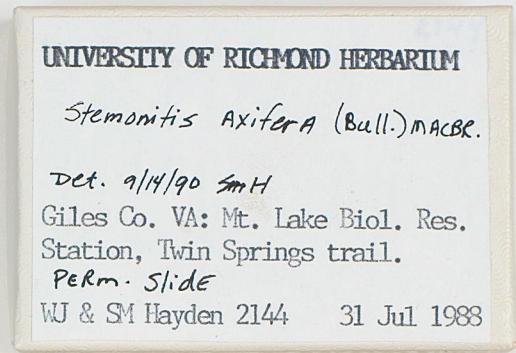 UNIVERSITY OF RICHMOND HERBARIUM
Stemonitis Axifera (Bull.) MACBR.
Det. 9/14/90 SmH
Giles Co. VA: Mt. Lake Biol. Res.
Station, Twin Springs trail.
PERM. SlidE
WJ & SM Hayden 2144 31 Jul 1988